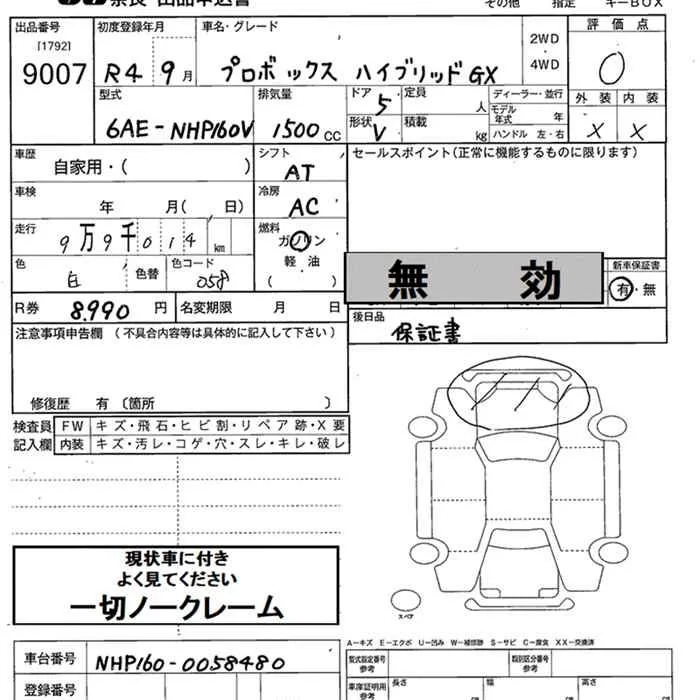 奈良 出品申込書
その他 指定 キーBOX
出品番号 初度登録年月 車名・グレード 評価点
[1792]
9007 R4 9月 プロボックス ハイブリッド GX 2WD・4WD 0
型式 排気量 ドア 5 定員 人 ディーラー・並行 外装 内装
モデル年式 年
6AE-NHP160V 1500cc 形状 V 積載 kg ハンドル 左・右 X X
車歴 自家用・( ) シフト AT セールスポイント(正常に機能するものに限ります)
車検 年 月( 日) 冷房 AC
走行 9万9千014km 燃料 ガソリン
色 白 色替 色コード 058 軽油
( )
無効 新車保証書
有・無
R券 8.990円 名変期限 月 日
後日品 保証書
注意事項申告欄 (不具合内容等は具体的に記入して下さい)
修復歴 有 〔箇所 〕
検査員 FW キズ・飛石・ヒビ割・リペア跡・X要
記入欄 内装 キズ・汚レ・コゲ・穴・スレ・キレ・破レ
現状車に付き
よく見てください
一切ノークレーム
スペア
A-キズ E-エクボ U-凹み W-補修跡 S-サビ C-腐食 XX-交換済
車台番号 NHP160-0058480 型式指定番号 参考 類別区分番号 参考
登録番号 車庫証明用 参考 長さ 幅 高さ